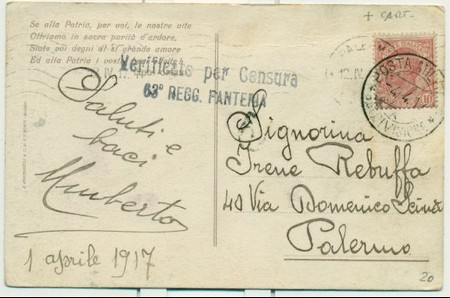 + CART.
Se alla Patria, per voi, le nostre vite
Offriamo in sacra parità d'ardore,
Siate voi degni di sì grande amore
Ed alla Patria i vostri
Verificato per Censura
63° REGG. FANTERIA
POSTA
10
Saluti e
baci
Umberto
1 aprile 1917
Signorina
Irene Rebuffa
40 Via Domenico Scinà
Palermo
20